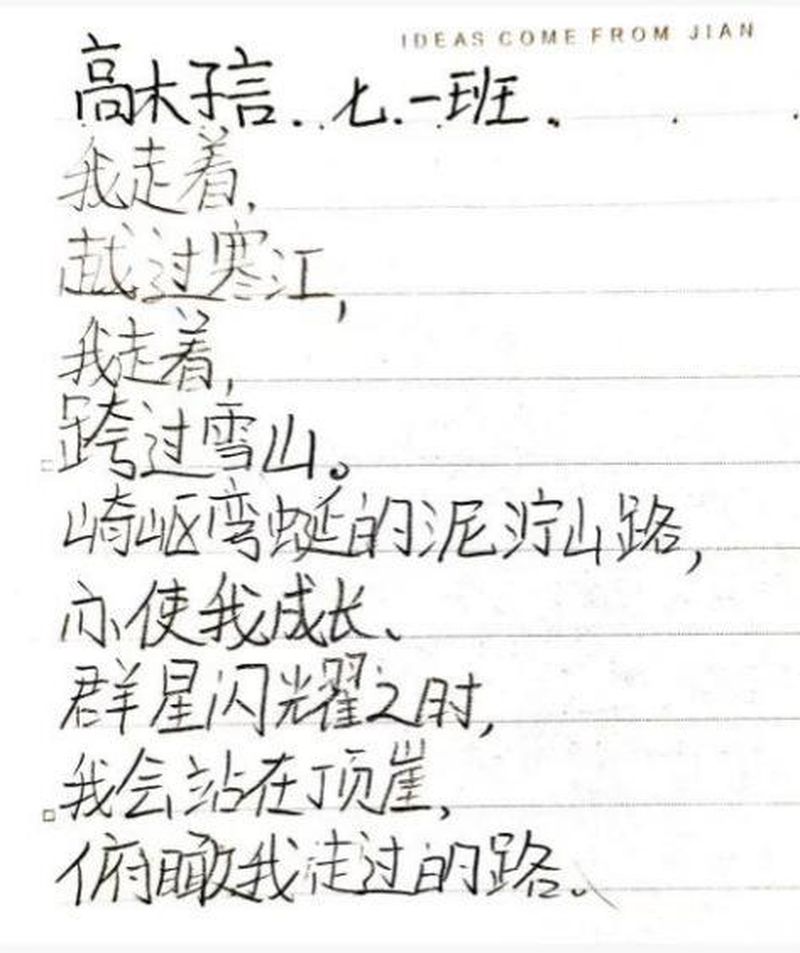 IDEAS COME FROM JIAN
高木子言. 七.一班.
我走着,
越过寒江,
我走着,
跨过雪山。
崎岖弯蜒的泥泞山路,
亦使我成长、
群星闪耀之时,
我会站在顶崖,
俯瞰我走过的路。